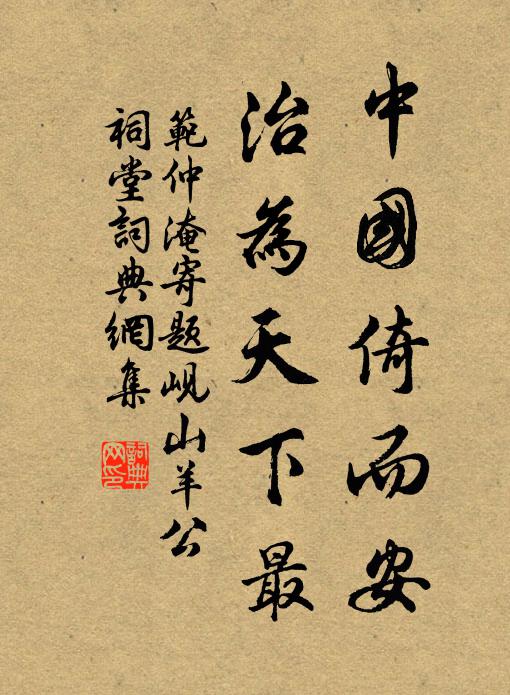 中國倚而安
治為天下最
範仲淹寄題峴山羊公
祠堂詞典網集
詞典
网印